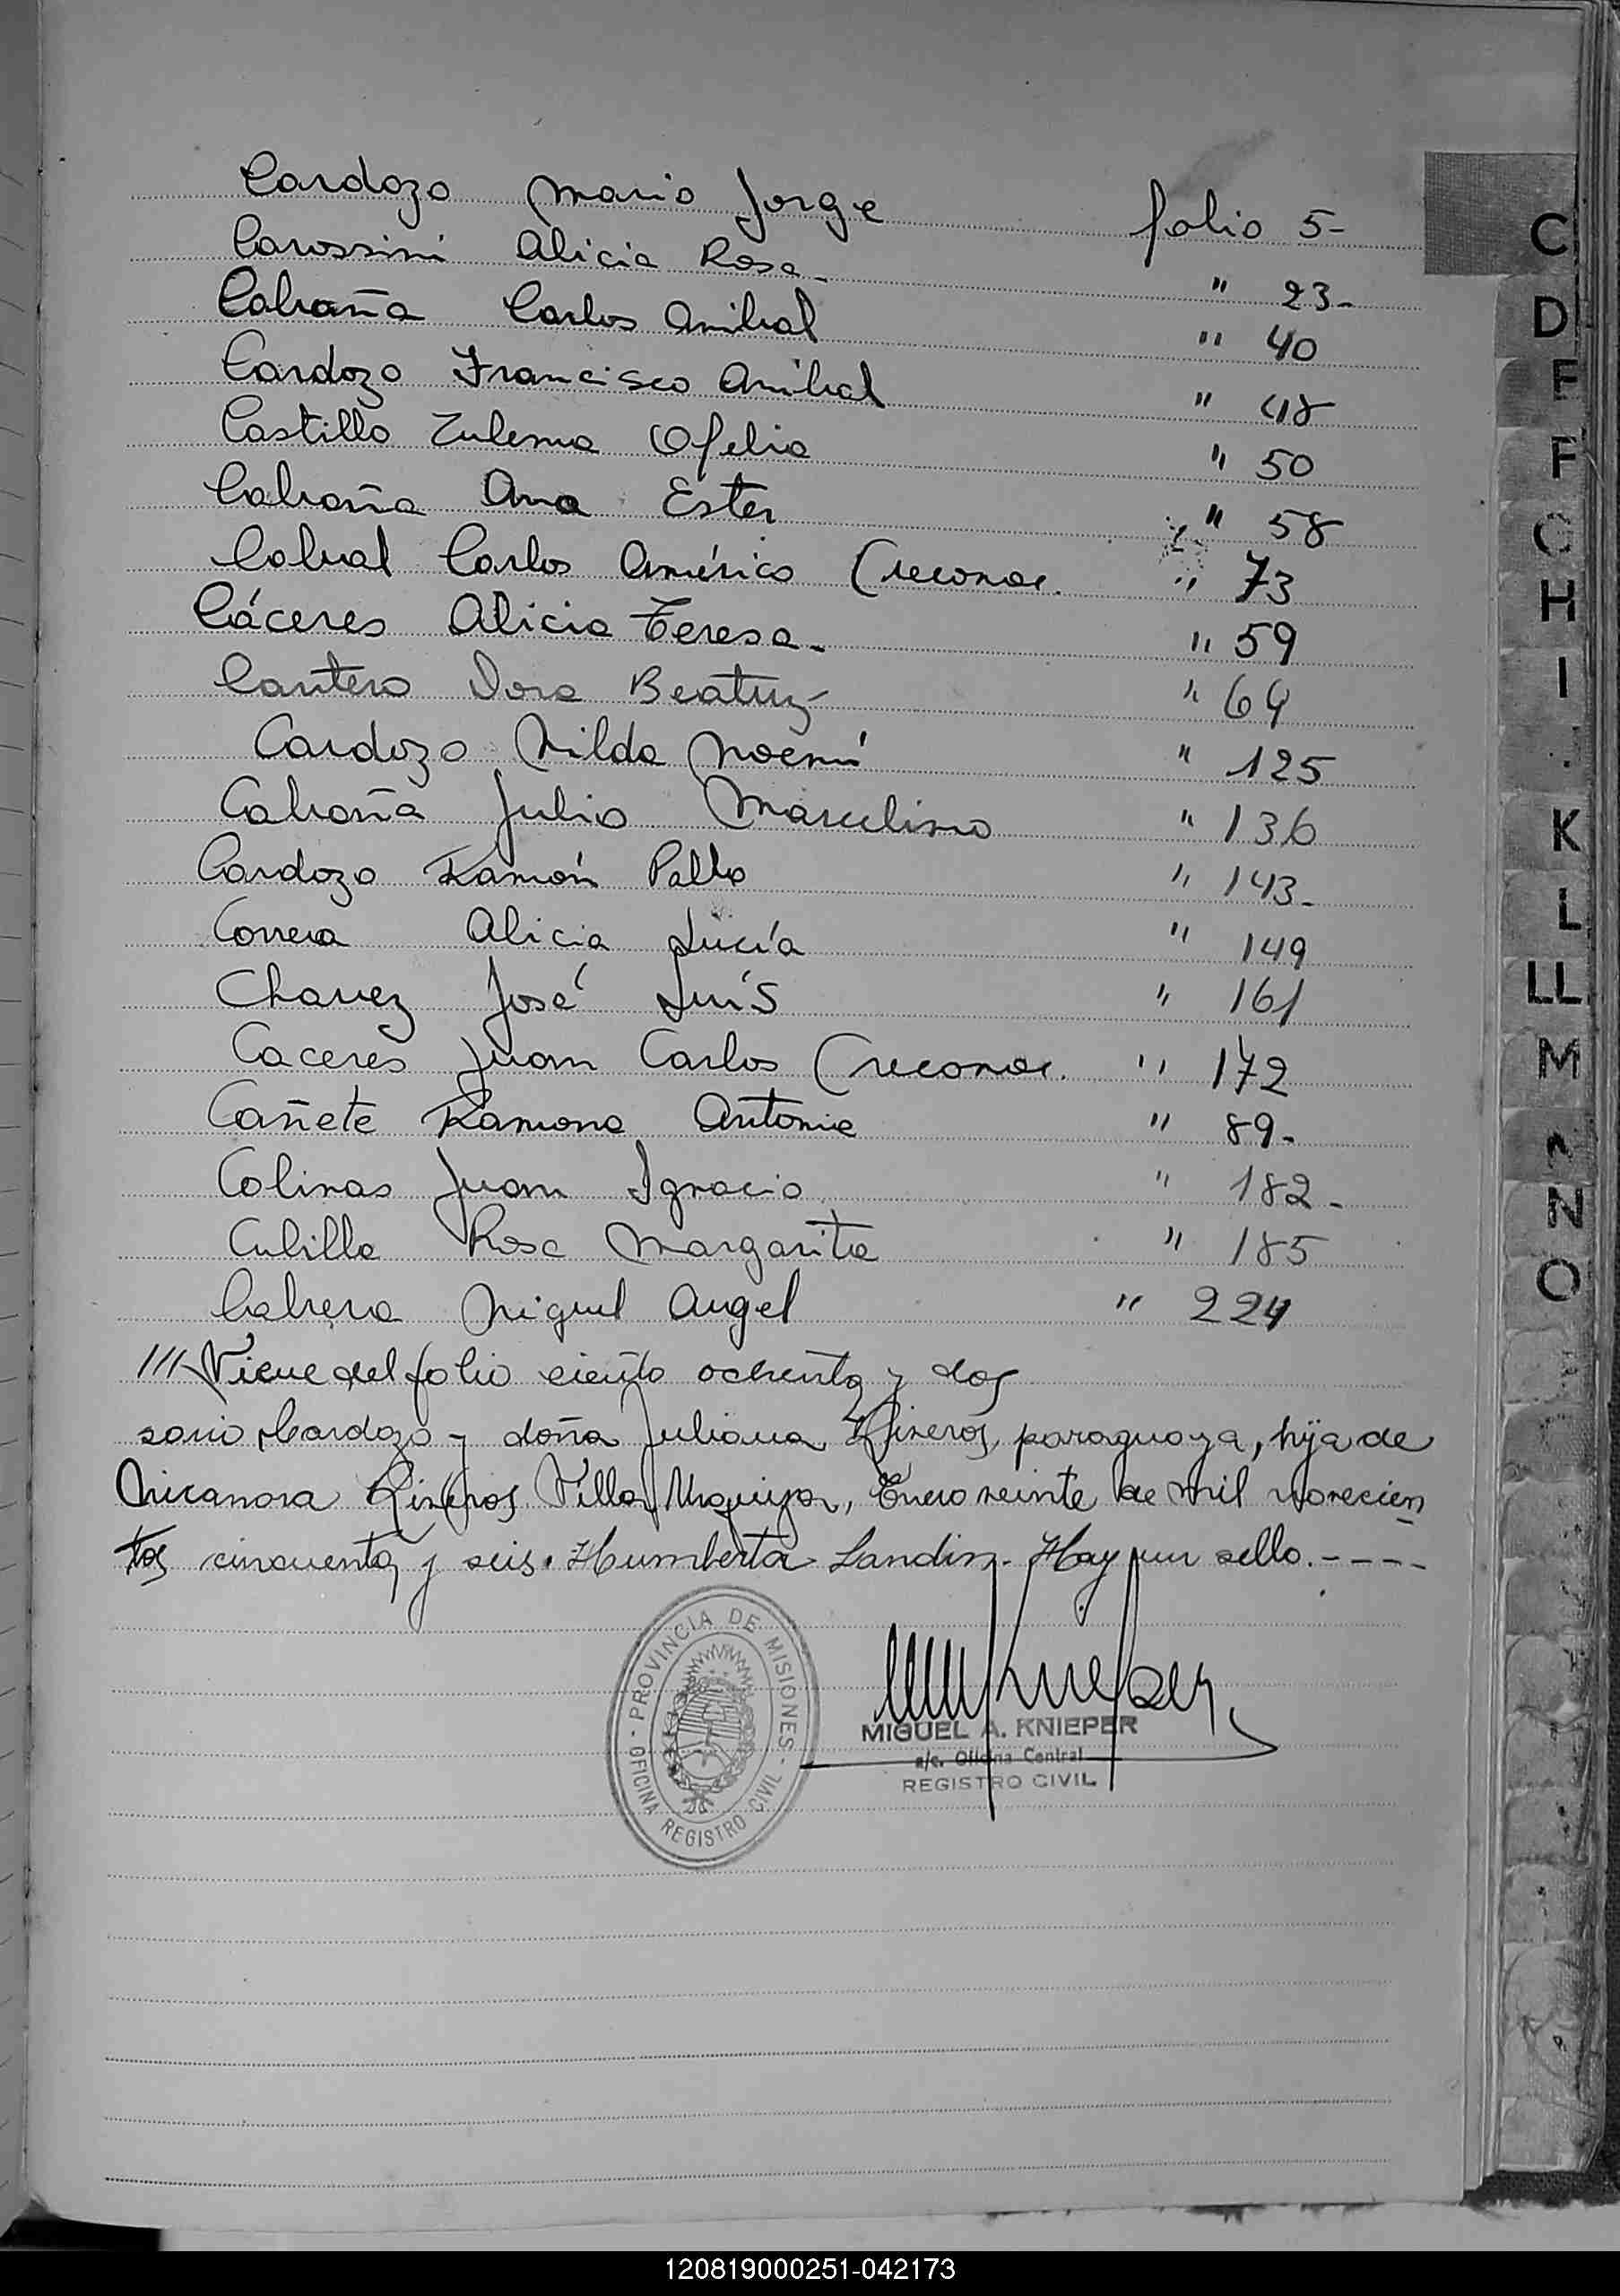 Cardozo Mario Jorge folio 5-
Carossini Alicia Rosa - " 23-
Cabraña Carlos Anibal " 40
Cardozo Francisco Anibal " 48
Castillo Zulema Ofelia " 50
Cabraña Ana Ester " 58
Cabral Carlos Américo (reconoc. " 73
Cáceres Alicia Teresa - " 59
Cantero Dora Beatriz " 64
Cardozo Nilda Noemí " 125
Cabraña Julio Marcelino " 136
Cardozo Ramón Pablo " 143-
Correa Alicia Lucía " 149
Chavez José Luís " 161
Caceres Juan Carlos (reconoc. " 172
Cañete Ramona Antonia " 89-
Colinas Juan Ignacio " 182-
Cubilla Rosa Margarita " 185
Cabrera Miguel Angel " 224
/// Viene del folio ciento ochenta y dos
sario Cardozo y doña Juliana Riveros, paraguaya, hija de
Nicanora Riveros. Villa Urquiza, Enero veinte de mil novecien
tos cincuenta y seis. Humberta Landin. Hay un sello. - - - -
PROVINCIA DE MISIONES - OFICINA REGISTRO CIVIL -
MIGUEL A. KNIEPER
a/c. Oficina Central
REGISTRO CIVIL
C
D
E
F
G
H
I
K
L
LL
M
N
O
120819000251-042173